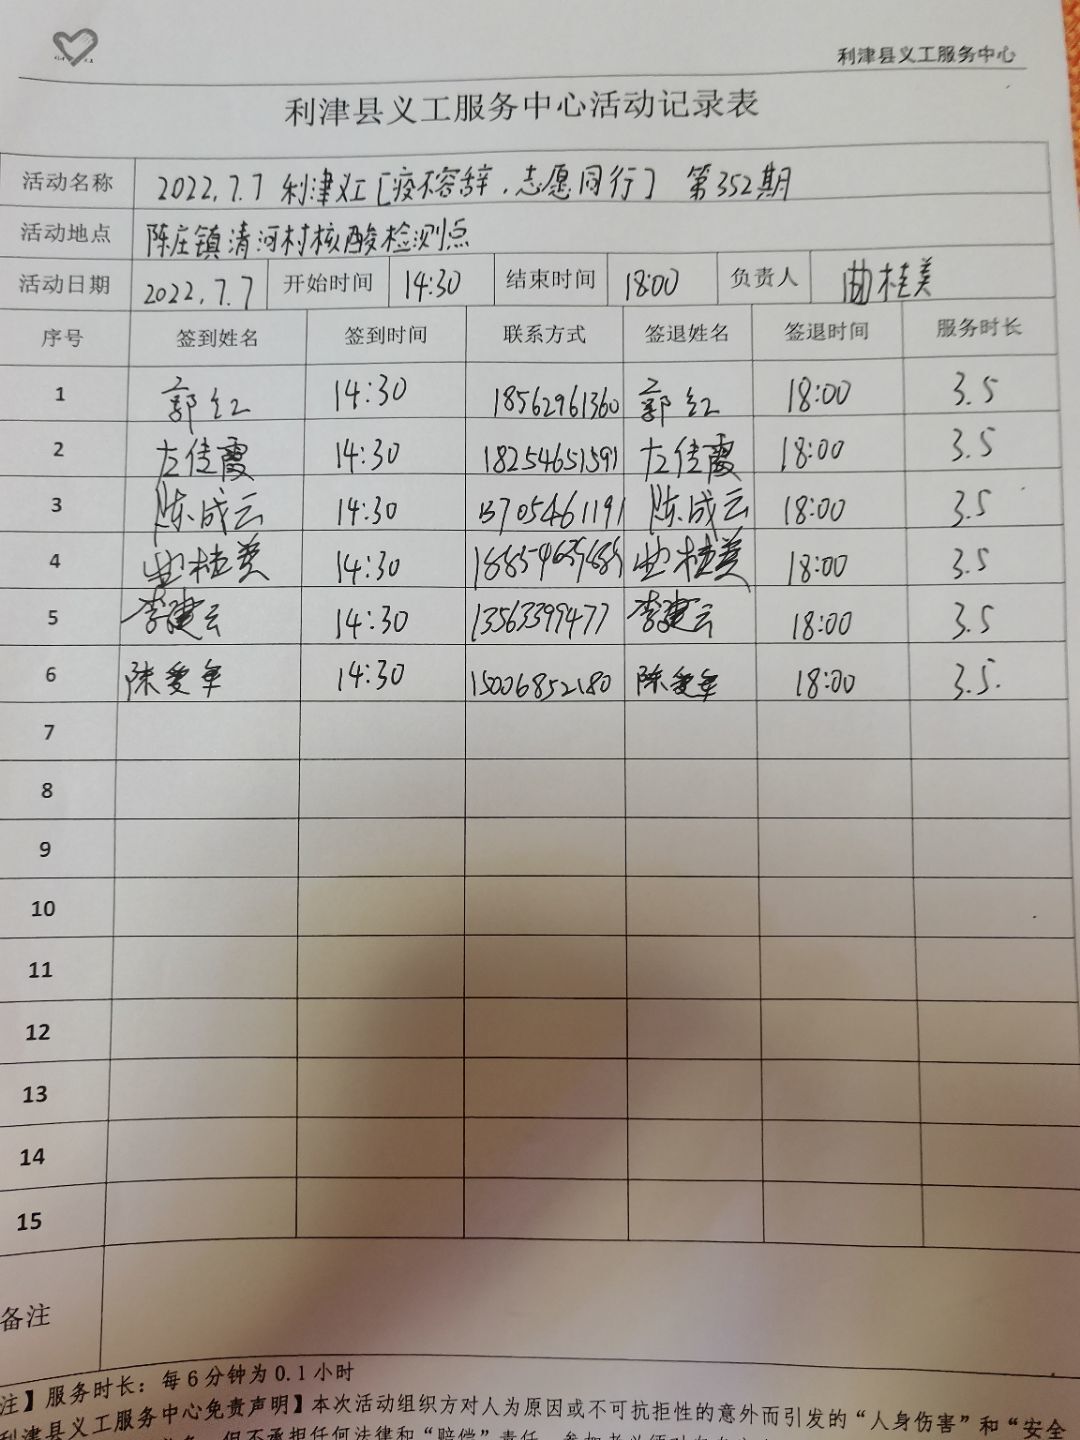 利津县义工服务中心
利津县义工服务中心活动记录表
活动名称 2022.7.7 利津义工[疫不容辞.志愿同行] 第352期
活动地点 陈庄镇清河村核酸检测点
活动日期 2022.7.7 开始时间 14:30 结束时间 18:00 负责人 曲桂美
序号 签到姓名 签到时间 联系方式 签退姓名 签退时间 服务时长
1 郭红 14:30 18562961360 郭红 18:00 3.5
2 左佳霞 14:30 18254651591 左佳霞 18:00 3.5
3 陈成云 14:30 13705461191 陈成云 18:00 3.5
4 曲桂美 14:30 曲桂美 18:00 3.5
5 李建云 14:30 13563399477 李建云 18:00 3.5
6 陈爱军 14:30 15006852180 陈爱军 18:00 3.5.
7
8
9
10
11
12
13
14
15
备注
注】服务时长：每6分钟为0.1小时
利津县义工服务中心免责声明】本次活动组织方对人为原因或不可抗拒性的意外而引发的“人身伤害”和“安全
但不承担任何法律和“赔偿”责任